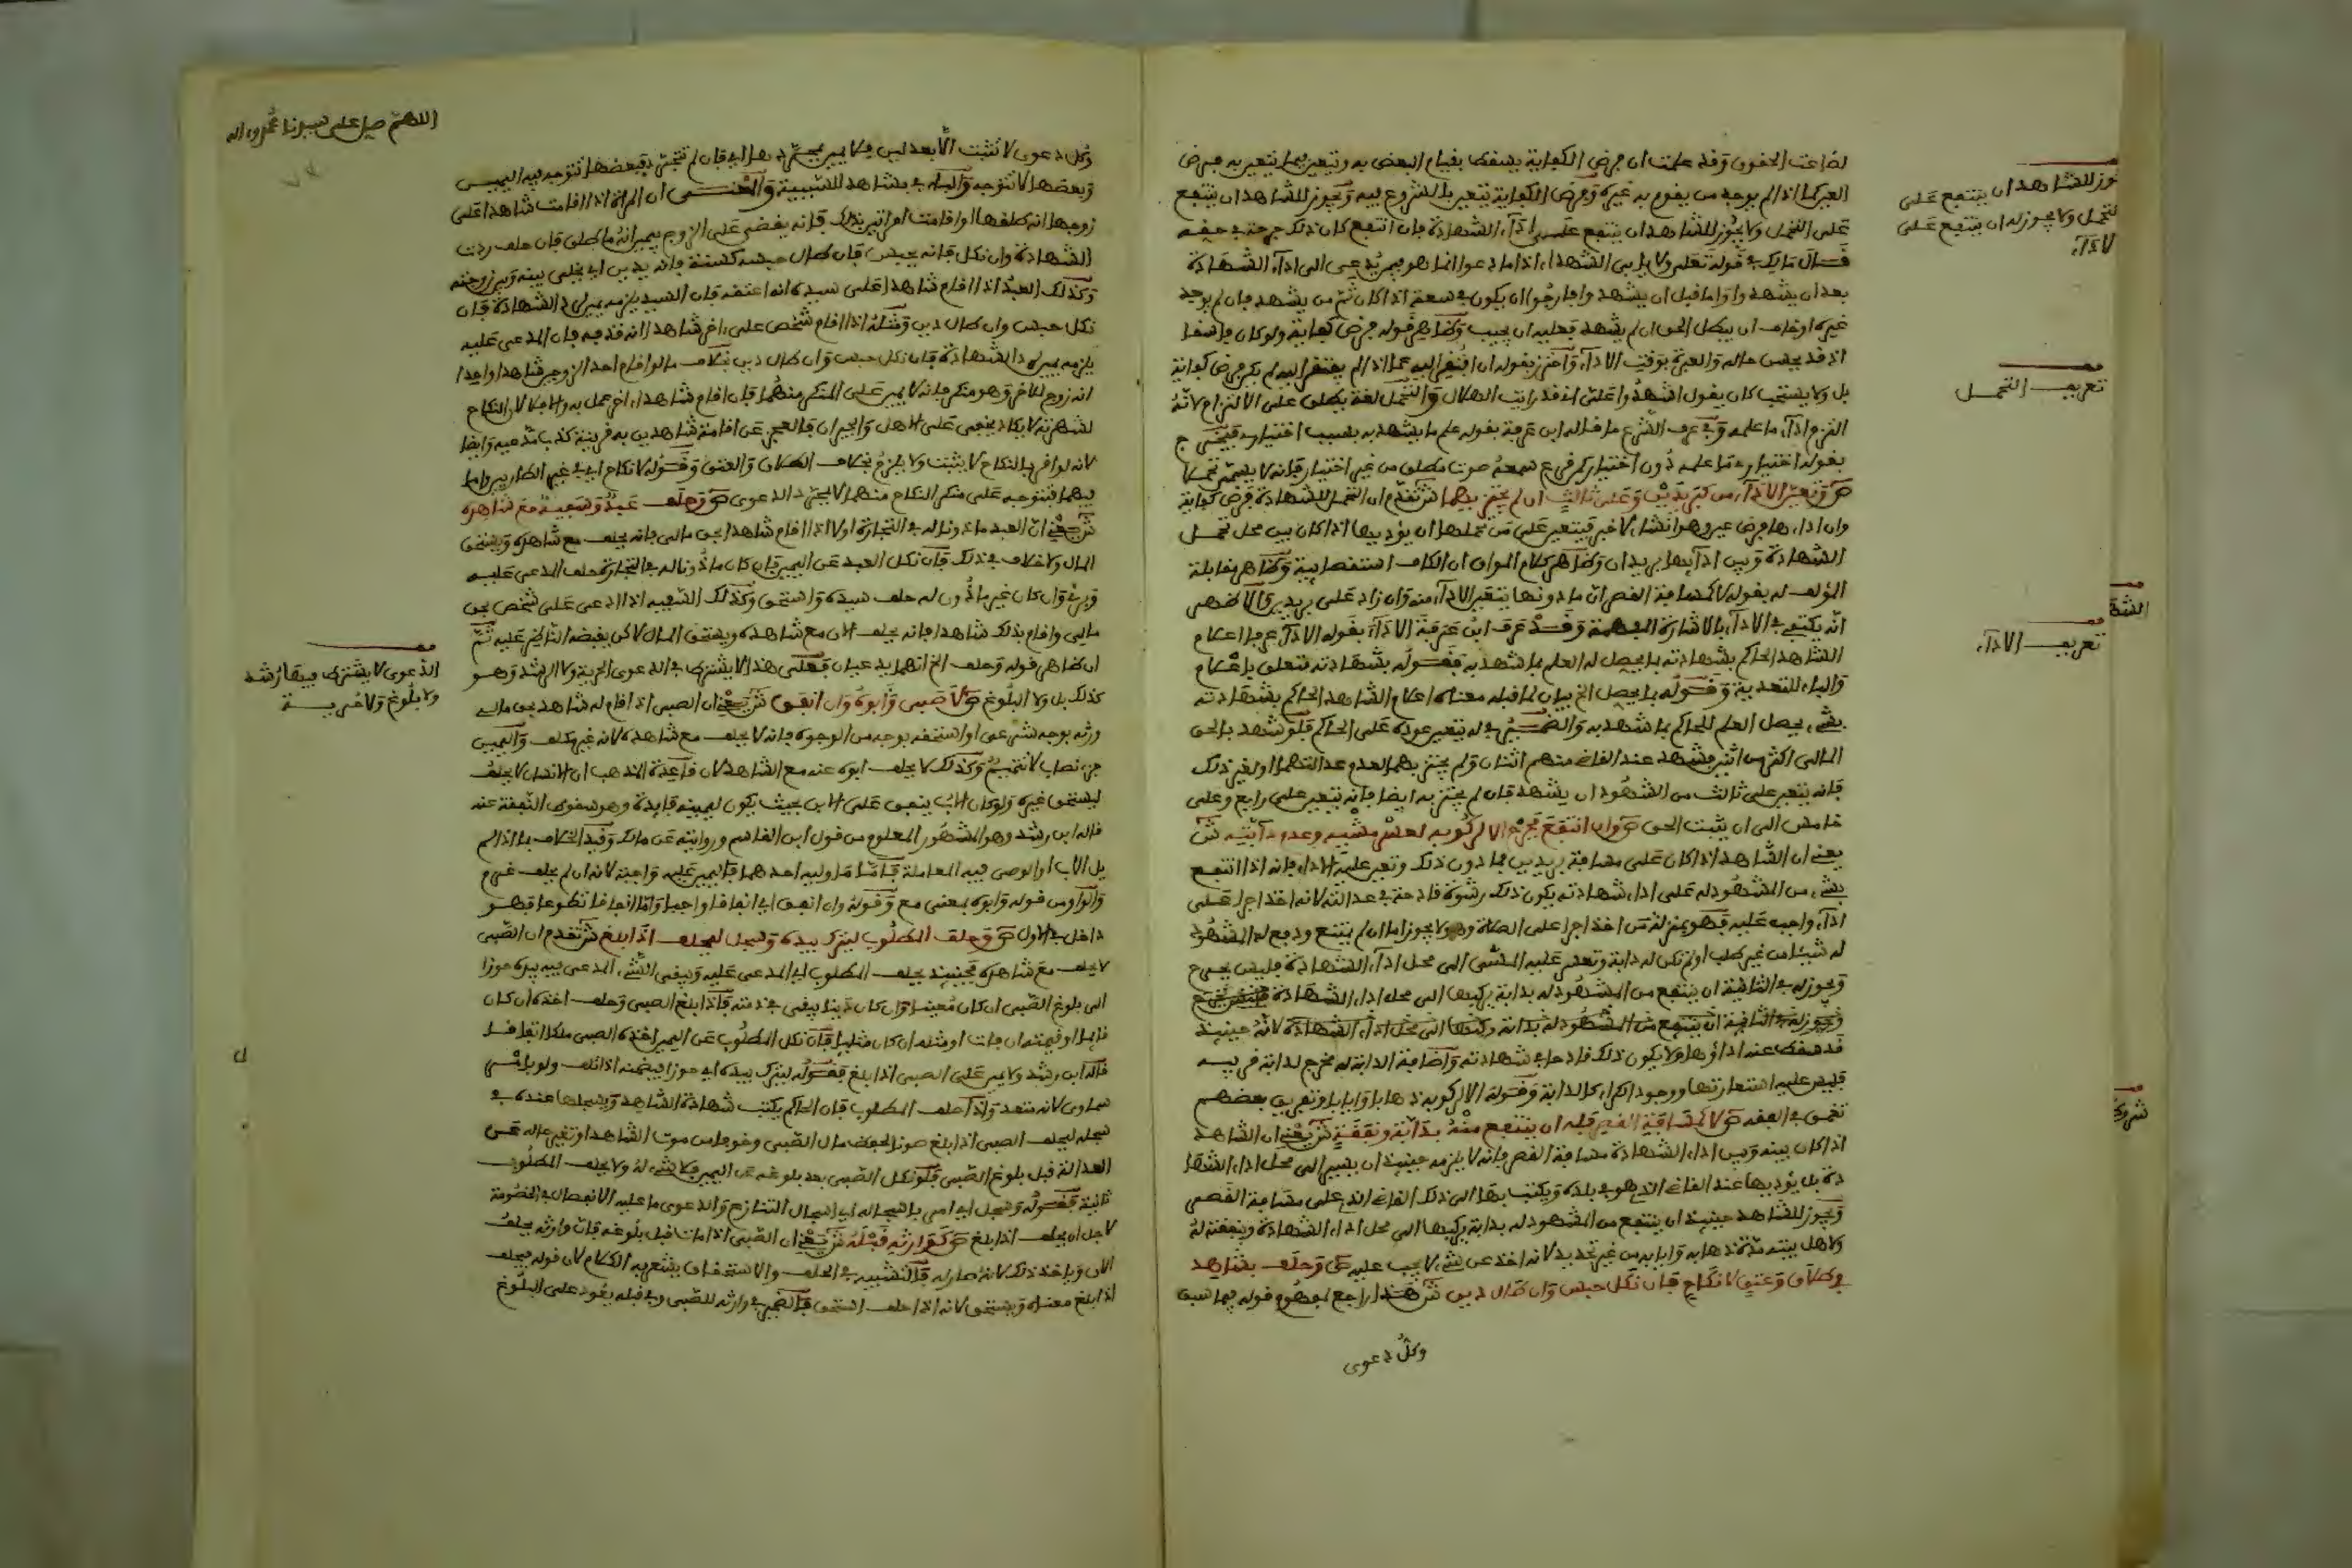 لضاعت الحقوق وقد علمت ان فرض الكفاية يسقط بقيام البعض به ويتعين بما يتعين به فرض
العين كما اذا لم يوجد من يقوم به غيره وفرض الكفاية يتعين بالشروع فيه ويجوز للشاهد ان ينتفع
على التحمل ولا يجوز للشاهد ان ينتفع على اداء الشهادة فان انتفع كان ذلك جرحة في حقه
قال مالك في قوله تعلى ولا يابى الشهداء اذا ما دعوا انما هو فيمن يدعى الى اداء الشهادة
بعد ان يشهدوا واما قبل ان يشهدوا فارجوا ان يكون في سعة اذا كان ثم من يشهد فان لم يوجد
غيره او خاف ان يبطل الحق ان لم يشهد فعليه ان يجيب وظاهر قوله فرض كفاية ولو كان فاسقا
اذ قد يحسن حاله والعبرة بوقت الاداء واحترز بقوله ان افتقر اليه عما اذا لم يفتقر اليه لم يكن فرض كفاية
بل ولا يستحب كان يقول اشهدوا على انه قد رايت الهلال والتحمل لغة يطلق على الالتزام لانه
التزم اداء ما علمه وفي عرف الشرع ما قاله ابن عرفة بقوله علم ما يشهد به بسبب اختياري فيخرج
بقوله اختياري ما علمه دون اختيار كمن قرع سمعه صوت مطلق من غير اختيار فانه لا يسمى تحملا
ص وتعين الاداء من كبريدين وعلى ثالث ان لم يجتز بهما ش تقدم ان التحمل للشهادة فرض كفاية
وان اداءها فرض عين وهو انشاء لا خبر فيتعين على من تحملها ان يؤديها اذا كان بين محل تحمل
الشهادة وبين ادائها بريدان وظاهر كلام المواق ان الكاف استقصائية وظاهر مقابلة
المؤلف له بقوله لا كمسافة القصر ان ما دونها يتعين الاداء منه وان زاد على بريدين والاظهر
انه يكتفى في الاداء بالاشارة المفهمة وقد عرف ابن عرفة الاداء بقوله الاداء عرفا اعلام
الشاهد الحاكم بشهادته بما يحصل له العلم بما شهد به فقوله بشهادته متعلق باعلام
والباء للتعدية وقوله بما يحصل الخ بيان لما قبله معناه اعلام الشاهد الحاكم بشهادته
بشيء يحصل العلم للحاكم بما شهد به والضمير في له يتعين عوده على الحاكم فلو شهد بالحق
المالي اكثر من اثنين فشهد عند القاضي منهم اثنان ولم يجتز بهما لعدم عدالتهما او لغير ذلك
فانه يتعين على ثالث من الشهود ان يشهد فان لم يجتز به ايضا فانه يتعين على رابع وعلى
خامس الى ان يثبت الحق ص وان انتفع فجرح الا لركوبه لعسر مشيه وعدم دابته ش
يعني ان الشاهد اذا كان على مسافة بريدين فما دون ذلك وتعين عليه الاداء فانه اذا انتفع
بشيء من المشهود له على اداء شهادته يكون ذلك رشوة قادحة في عدالته لانه اخذ اجرا على
اداء واجب عليه فهو بمنزلة من اخذ اجرا على الصلاة وهو لا يجوز اما ان لم ينتفع ودفع له المشهود
له شيئا من غير طلب او لم تكن له دابة وتعسر عليه المشي الى محل اداء الشهادة فليس بجرح
ويجوز له في الثانية ان ينتفع من المشهود له بدابة يركبها الى محل اداء الشهادة
ويجوز له في الثانية ان ينتفع من المشهود له بدابة ركبها الى محل اداء الشهادة لانه حينيذ
قد سقط عنه اداؤها ولا يكون ذلك قادحا في شهادته واضافة الدابة له مخرج لدابة قريبه
فليس عليه استعارتها ووجود الكراء كالدابة وقوله الا لركوبه ذهابا وايابا وتعريف بعضهم
نقص في الفقه ص لا كمسافة القصر فله ان ينتفع منه بدابة ونفقة ش يعني ان الشاهد
اذا كان بينه وبين اداء الشهادة مسافة القصر فانه لا يلزمه حينيذ ان يسير الى محل اداء الشها
دة بل يؤديها عند القاضي الذي هو في بلده ويكتب بها الى ذلك القاضي الذي على مسافة القصر
ويجوز للشاهد حينيذ ان ينتفع من المشهود له بدابة يركبها الى محل اداء الشهادة وبنفقة له
ولاهل بيته مدة ذهابه وايابه من غير تحديد لانه اخذ عن شيء لا يجب عليه ص وحلف بشاهد
في طلاق وعتق لا نكاح فان نكل حبس وان طال دين ش هذا راجع لمفهوم قوله فيما سبق
وكل دعوى
يجوز للشاهد ان ينتفع على
التحمل ولا يجوز له ان ينتفع على
الاداء
تعريف التحمل
تعريف الاداء
اللهم صل على سيدنا محمد واله
وكل دعوى لا تثبت الا بعدلين فلا يمين بمجردها اي فان لم تتجرد فبعضها تتوجه فيه اليمين
وبعضها لا تتوجه والباء في بشاهد للسببية والمعنى ان المراة اذا اقامت شاهدا على
زوجها انه طلقها او اقامت امراتين بذلك فانه يقضى على الزوج بيمين انه ما طلق فان حلف ردت
الشهادة وان نكل فانه يحبس فان طال حبسه كسنة فانه يدين اي يخلى بينه وبين زوجته
وكذلك العبد اذا اقام شاهدا على سيده انه اعتقه فان السيد يلزمه يمين لرد الشهادة فان
نكل حبس وان طال دين ومثله اذا اقام شخص على اخر شاهدا انه قذفه فان المدعى عليه
يلزمه يمين لرد الشهادة فان نكل حبس وان طال دين بخلاف ما لو اقام احد الزوجين شاهدا واحدا
انه زوج للاخر وهو منكر فانه لا يمين على المنكر منهما فان اقام شاهدا اخر عمل به والا فلا لان النكاح
لشهرته لا يكاد يخفى على الاهل والجيران فالعجز عن اقامة شاهدين به قرينة كذب مدعيه وايضا
لانه لو اقر بالنكاح لا يثبت ولا يلزم بخلاف الطلاق والعتق وقوله لا نكاح اي في غير الطاريين واما
فيهما فتتوجه على منكر النكاح منهما لا بمجرد الدعوى ص وحلف عبد وسفيه مع شاهده
ش يعني ان العبد ماذونا له في التجارة او لا اذا اقام شاهدا بحق مالي فانه يحلف مع شاهده ويستحق
المال ولا خلاف في ذلك فان نكل العبد عن اليمين فان كان ماذونا له في التجارة حلف المدعى عليه
وبرئ وان كان غير ماذون له حلف سيده واستحق وكذلك السفيه اذا ادعى على شخص بحق
مالي واقام بذلك شاهدا فانه يحلف الان مع شاهده ويستحق المال لاكن يقبضه الناظر عليه ثم
ان ظاهر قوله وحلف الخ انهما يدعيان فعلى هذا لا يشترط في الدعوى الحرية ولا الرشد وهو
كذلك بل ولا البلوغ ص لا صبي وابوه وان انفق ش يعني ان الصبي اذا قام له شاهد بحق مالي
ورثه بوجه شرعي او استحقه بوجه من الوجوه فانه لا يحلف مع شاهده لانه غير مكلف واليمين
جزء نصاب لا تتميم وكذلك لا يحلف ابوه عنه مع الشاهد لان قاعدة المذهب ان الانسان لا يحلف
ليستحق غيره ولو كان الاب ينفق على الابن بحيث يكون ليمينه فايدة وهو سقوط النفقة عنه
قاله ابن رشد وهو المشهور المعلوم من قول ابن القاسم وروايته عن مالك وقيد الخلاف بما اذا لم
يل الاب او الوصي فيه المعاملة فاما ما وليه احدهما فاليمين عليه واجبة لانه ان لم يحلف غرم
والواو من قوله وابوه بمعنى مع وقوله وان انفق اي انفاقا واجبا واما انفاقا تطوعا فهو
داخل في الاول ص وحلف المطلوب ليترك بيده وسجل ليحلف اذا بلغ ش تقدم ان الصبي
لا يحلف مع شاهده فحينيذ يحلف المطلوب اي المدعى عليه ويبقى الشيء المدعى فيه بيده حوزا
الى بلوغ الصبي ان كان معينا وان كان دينا يبقى في ذمته فاذا بلغ الصبي وحلف اخذه ان كان
قايما او قيمته ان فات او مثله ان كان مثليا فان نكل المطلوب عن اليمين اخذه الصبي ملكا اتفاقا
قاله ابن رشد ولا يمين على الصبي اذا بلغ فقوله ليترك بيده اي حوزا فيضمنه اذا تلف ولو بامر
سماوي لانه متعد واذا حلف المطلوب فان الحاكم يكتب شهادة الشاهد ويسجلها عنده في
سجله ليحلف الصبي اذا بلغ صونا لحفظ مال الصبي وخوفا من موت الشاهد او تغير حاله عن
العدالة قبل بلوغ الصبي فلو نكل الصبي بعد بلوغه عن اليمين فلا شيء له ولا يحلف المطلوب
ثانية فقوله وسجل اي امر باسجاله اي اسجال التنازع والدعوى ما عليه الانفصال في الخصومة
لاجل ان يحلف اذا بلغ ص كوارثه قبله ش يعني ان الصبي اذا مات قبل بلوغه فان وارثه يحلف
الان وياخذ ذلك لانه صار له فالتشبيه في الحلف والاستحقاق يشعر به الكلام لان قوله فيحلف
اذا بلغ معناه ويستحق لانه اذا حلف استحق فالضمير في وارثه للصبي وفي قبله يعود على البلوغ
الدعوى لا يشترط فيها رشد
ولا بلوغ ولا حرية